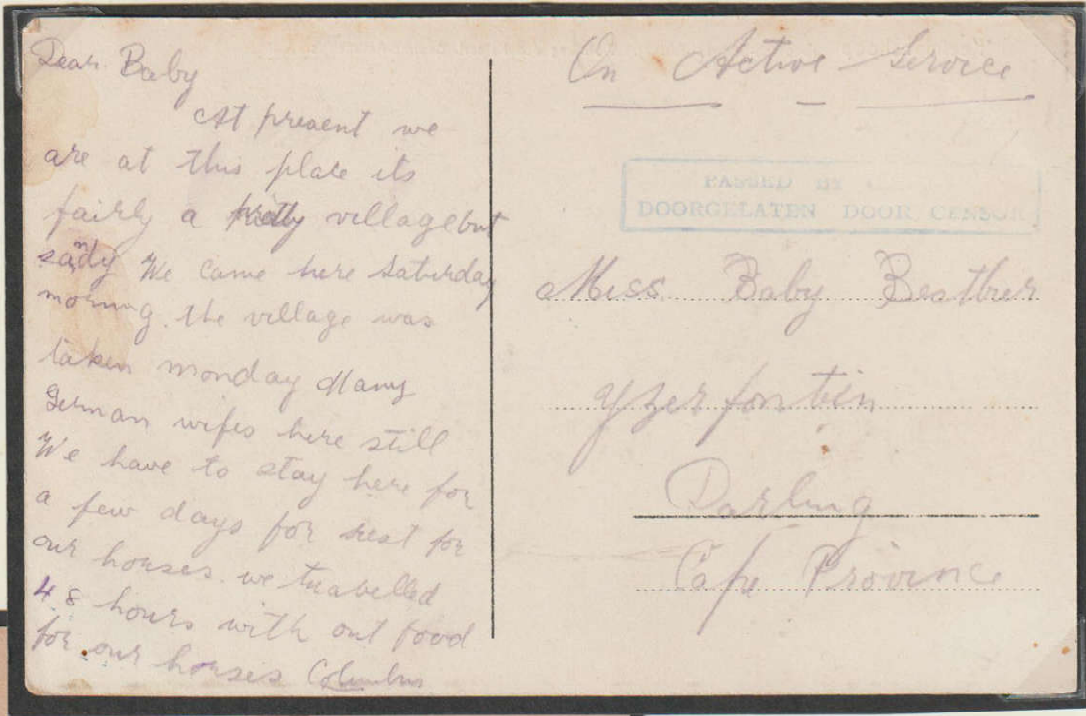 Dear Baby
At present we
are at this place its
fairly a village but
sandy We came here Saturday
morning. the village was
taken monday Many
German wifes here still
We have to stay here for
a few days for rest for
our horses. we travelled
48 hours with out food
for our horses Columbus
On Active Service
PASSED BY
DOORGELATEN DOOR CENSOR
Miss Baby Beatbier
Yzerfontein
Darling
Cape Province